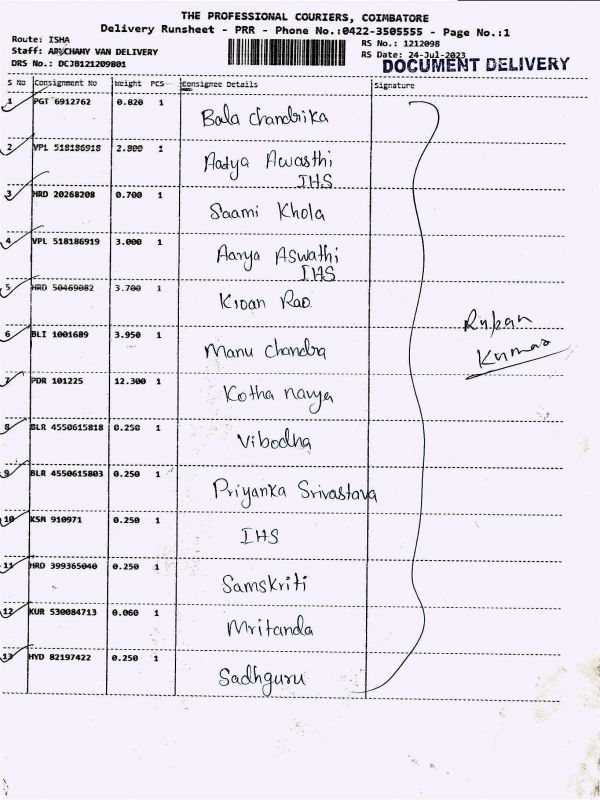 THE PROFESSIONAL COURIERS, COIMBATORE
Delivery Runsheet - PRR - Phone No.:0422-3505555 - Page No.:1
Route: ISHA RS No.: 1212098
Staff: VAN DELIVERY RS Date: 24-Jul-2023
DRS No.: DCJB121209801 DOCUMENT DELIVERY
S No Consignment No Weight PCS Consignee Details Signature
1 PGT 6912762 0.820 1 Bala Chandrika
2 VPL 518186918 2.800 1 Aadya Awasthi
IHS
3 HRD 20268208 0.700 1 Saami Khola
4 VPL 518186919 3.000 1 Aarya Aswathi
IHS
5 HRD 50469082 3.700 1 Kiran Rao
6 BLI 1001689 3.950 1 Manu Chandra
Ruban
Kumar
7 PDR 101225 12.300 1 Kotha navya
8 BLR 4550615818 0.250 1 Vibodha
9 BLR 4550615803 0.250 1 Priyanka Srivastava
10 KSM 910971 0.250 1 IHS
11 HRD 399365040 0.250 1 Samskriti
12 KUR 530084713 0.060 1 Mritanda
13 HYD 82197422 0.250 1 Sadhguru